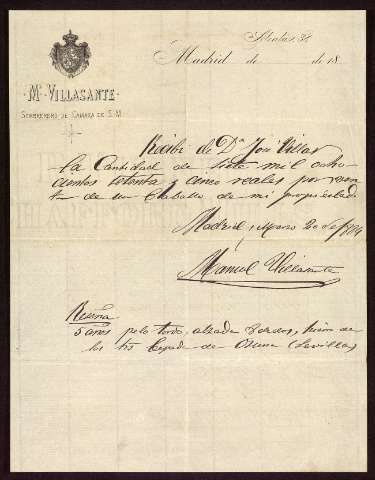 Alcalá, 38
Madrid de de 18
Ml. VILLASANTE
SOMBRERERO DE CÁMARA DE S. M.
Recibí de Dn José Villar
la Cantidad de siete mil ocho
cientos setenta y cinco reales por ven
ta de un Caballo de mi propiedad
Madrid, Marzo 20 de
Manuel Villasante
Reseña
5 años pelo tordo, alzada 7 dedos, hierro de
los Cepeda de Osuna (Sevilla)